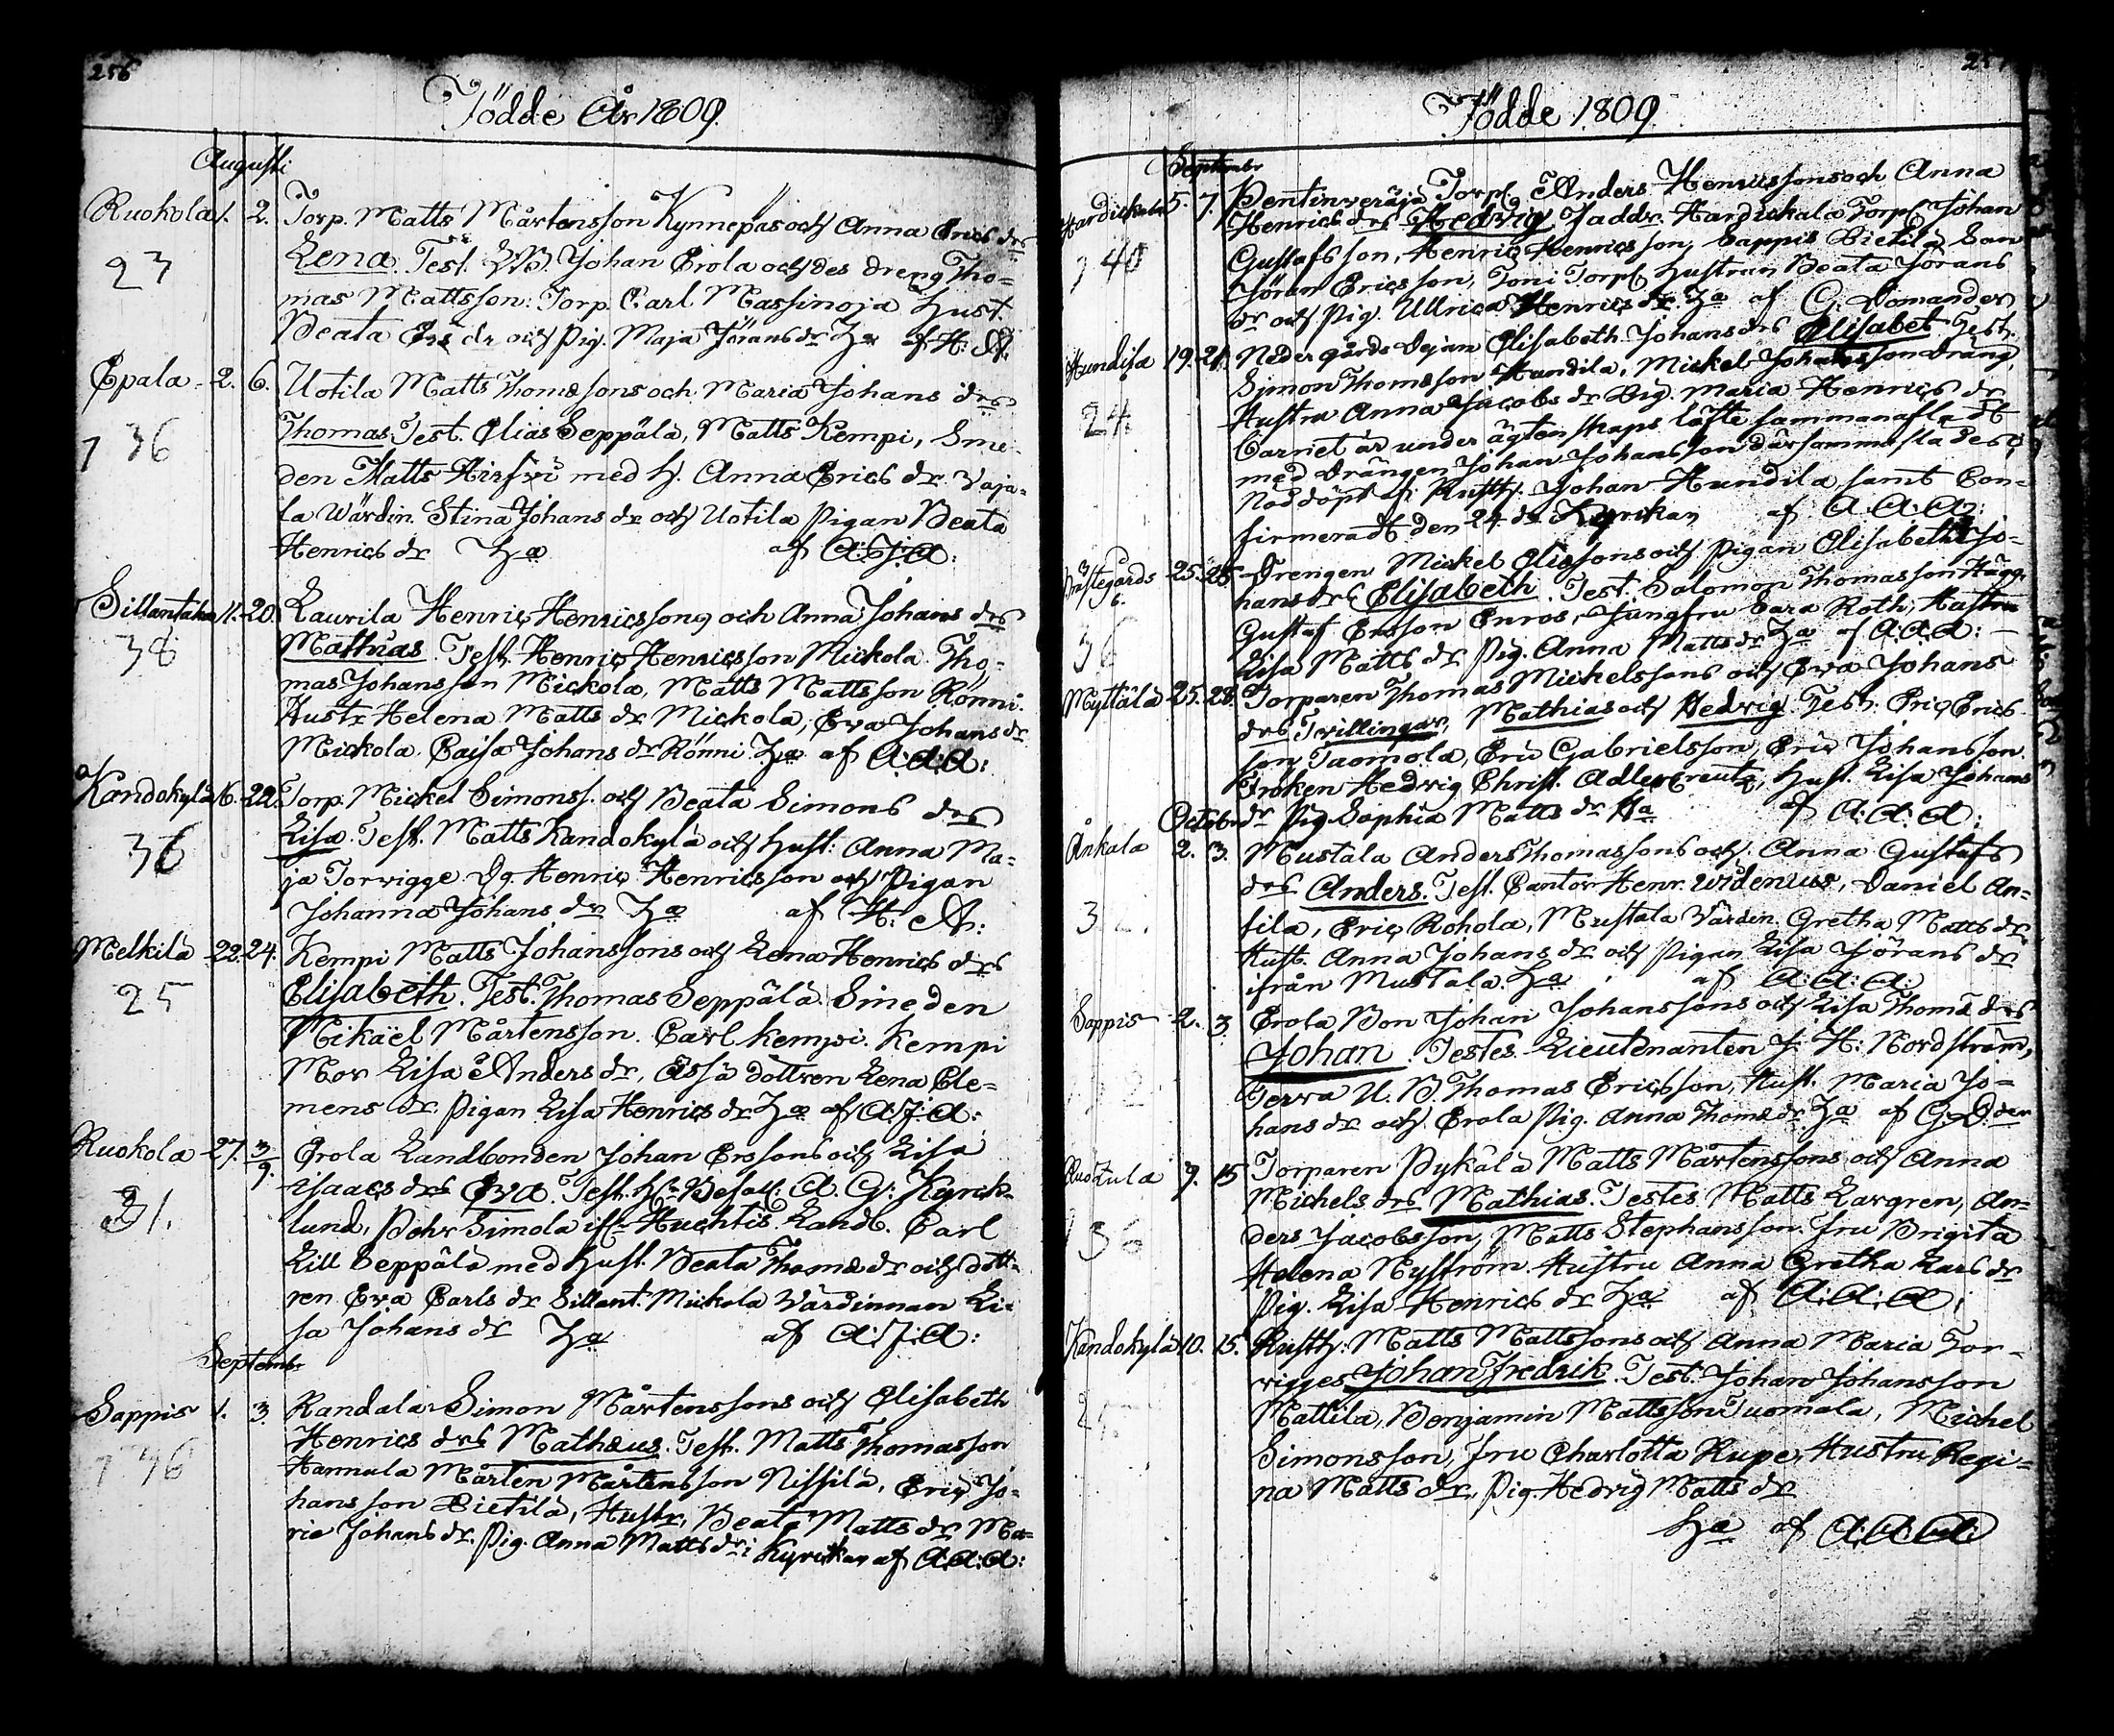 256
Födde År 1809.
Augusti
Ruokola 1. 2. Torp. Matts Mårtensson Kynnepas och Anna Erics dr
27 Lena. Test. LB. Johan Erola och des dreng Tho-
mas Mattsson: Torp. Carl Massinoja Hust.
Beata Ers dr och Pig. Maja Jörans dr Hza af H: A.
Epala 2. 6. Uotila Matts Thomæsons och Maria Johans drs
36 Thomas. Test. Elias Seppälä, Matts Kempi, Sme-
den Matts Hirfvi med H. Anna Erics dr Vaja-
la Wärdin. Stina Johans dr och Uotila Pigan Beata
Henrics dr Hza af A:J:A:
Sillantaka 11. 20. Laurila Henric Henricssons och Anna Johans drs
38 Mathias. Test. Henric Henricsson Mickola. Tho-
mas Johansson Mickola, Matts Mattsson Rönni.
Hustr. Helena Matts dr Mickola, Eva Johans dr
Mickola Caisa Johans dr Rönni Hza af A:A:A:
Kandokylä 16. 22. Torp. Mickel Simonss. och Beata Simons drs
36 Lisa. Test. Matts Kandokylä och Hust: Anna Ma-
ja Torwigge. Dg. Henric Henricsson och Pigan
Johanna Johans dr Hza af H: A:
Melkilä 22. 24. Kempi Matts Johanssons och Lena Henrics drs
25 Elisabeth. Test. Thomas Seppälä. Smeden
Mikäel Mårtensson. Carl Kempi. Kempi
Mor Lisa Anders dr, Åssä dottren Lena Cle-
mens dr. Pigan Lisa Henrics dr. Hza af A:J:A:
Ruokola 27. 3/9. Erola Landbonden Johan Erssons och Lisa
31. Isaacs drs Eva. Test. Hr Befall. A. G: Kyrck-
lund, Pehr Simola ifr. Huchtis. Landb. Carl
Lill Seppälä med Hust. Beata Thomæ dr och dott-
ren Eva Carls dr Sillant. Mickola Värdinnan Li-
sa Johans dr Hza af A:J:A:
Septembr
Sappis 1. 3. Randala Simon Mårtenssons och Elisabeth
Henrics drs Mathæus. Test. Matts Thomasson
Hannula Mårten Mårtensson Nissilä, Eric Jo-
hansson Pietilä, Hustr. Beata Matts dr Ma-
ria Johans dr. Pig. Anna Matts dr i Kyrckan af A:A:A:
Födde 1809.
Septembr
5. 7. Pentinweräjä Torp. Anders Henricssons och Anna
40 Henrics drs Hedvig. Faddr. Hardickala Torp. Johan
Gustafsson, Henric Henricsson, Sappis Pietilä Son
Jöran Ericsson, Toni Torp. Hustrun Beata Jörans
dr och Pig. Ullrica Henrics dr. Hza af G. Lomander
Hundila 19. 21. Nedergårds Dejan Elisabeth Johans drs Elisabet Test.
24. Simon Thomæson Hundila, Mickel Johansson Dräng,
Hustru Anna Jacobs dr Pig. Maria Henrics dr
Barnet är under ägtenskaps löfte sammanafladt
med Drängen Johan Johansson därsammastädes,
Nöddöpt af Rusth. Johan Hundila, samt Con-
firmeradt den 24 de i Kyrkan af A:A:A:
25. 28. Drengen Mickel Eliæsons och Pigan Elisabeth Jo-
36 hans drs Elisabeth. Test. Salomon Thomasson Hägg.
Gustaf Ersson Enros, Jungfru Sara Roth, Hustru
Lisa Matts dr Pig. Anna Matts dr Hza af A:A:A:
Myttälä 25. 28. Torparen Thomas Mickelssons och Eva Johans
drs Tvillingar, Mathias och Hedvig. Test. Eric Erics-
son Taomola, Eric Gabrielsson, Eric Johansson.
Fröken Hedvig Christ. Adlercreutz, Hust. Lisa Johans
dr Pig. Sophia Matts dr Hza af A:A:A:
October
Ånkala 2. 3. Mustala Anders Thomassons och Anna Gustafs
drs Anders. Test. Cantor Henr. Widenius, Daniel An-
tila, Eric Rohola, Mustala Värdin. Gretha Matts dr
Hust. Anna Johans dr och Pigan Lisa Jörans dr
ifrån Mustala. Hza af A:A:A:
Sappis 2. 3. Erola Bon Johan Johanssons och Lisa Thomæ drs
Johan. Testes. Lieutenanten J: H: Nordström,
Terva U. B. Thomas Ericsson, Hust. Maria Jo-
hans dr och Erola Pig. Anna Thomæ dr. Hza af
9. 15 Torparen Pykälä Matts Mårtenssons och Anna
36 Michels drs Mathias. Testes Matts Lavgren, An-
ders Jacobsson, Matts Stephansson. Fru Brigita
Helena Nyström. Hustru Anna Gretha Lars dr
Pig. Lisa Henrics dr Hza af A:A:A:
Kandokylä 10. 15. Rusth: Matts Mattssons och Anna Maria Tor-
wigges Johan Fredrik. Test. Johan Johansson
Mattila, Benjamin Mattsson Tuomola, Michel
Simonsson, Fru Charlotta Rupe, Hustru Regi-
na Matts dr, Pig. Hedvig Matts dr
Hza af A:A:A: